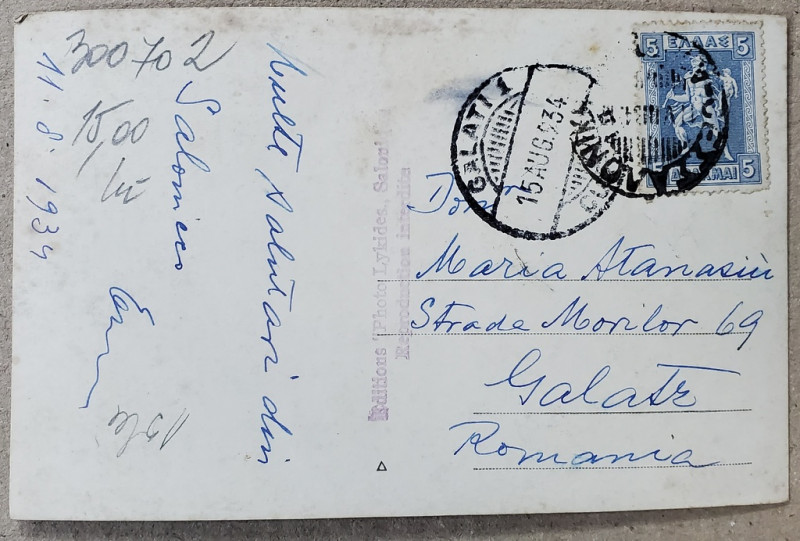 300702
15,00
lei
11.8.1934
Multe salutari din
Salonico
15 lei
Editions "Photo Lykides., Saloni
Reproduction interdite
GALATI 1
15 AUG 934
5 ΕΛΛΑΣ 5
5 ΔΡΑΧΜΑΙ 5
Maria Atanasiu
Strada Morilor 69
Galatz
Romania